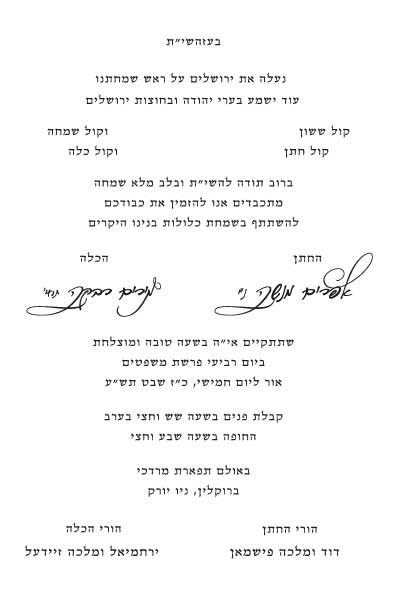 בעזהשי״ת
נעלה את ירושלים על ראש שמחתנו
עוד ישמע בערי יהודה ובחוצות ירושלים
קול ששון וקול שמחה
קול חתן וקול כלה
ברוב תודה להשי״ת ובלב מלא שמחה
מתכבדים אנו להזמין את כבודכם
להשתתף בשמחת כלולות בנינו היקרים
החתן הכלה
אפרים מנשה ני״ מרים רבקה תחי׳
שתתקיים אי״ה בשעה טובה ומוצלחת
ביום רביעי פרשת משפטים
אור ליום חמישי, כ״ז שבט תש״ע
קבלת פנים בשעה שש וחצי בערב
החופה בשעה שבע וחצי
באולם תפארת מרדכי
ברוקלין, ניו יורק
הורי החתן הורי הכלה
דוד ומלכה פישמאן ירחמיאל ומלכה זיידעל